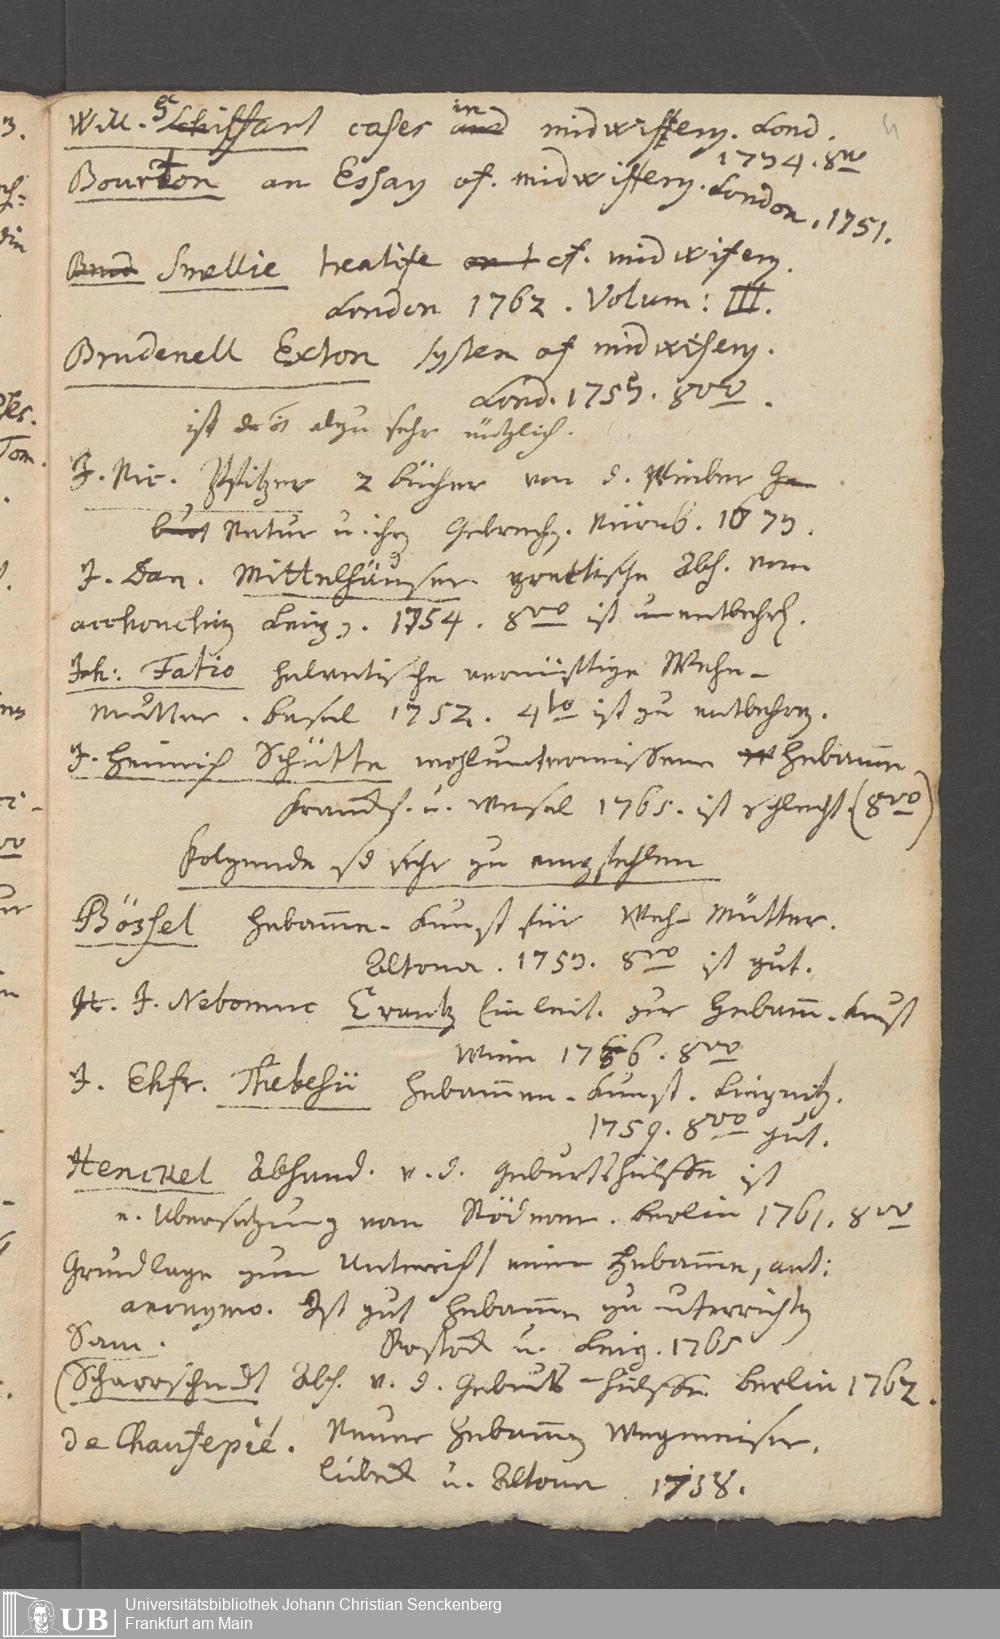 Will. Schiffart cases in midwiffery. Lond.
1734. 8vo
Bourton an Essay of. midwiffery. London. 1751.
Smellie treatise of. midwifery.
London 1762. Volum: III.
Brudenell Exton system of midwifery.
Lond. 1753. 8vo.
ist alzu sehr nützlich.
J. Nic. Pfitzer 2 bücher von d. Weiber
Natur u. ihrn Gebrech. Nürnb. 1673.
J. Dan. Mittelhäuser practische Abh. vom
accouchiren Leipz. 1754. 8vo ist unentbehrl.
Joh: Fatio helvetische vernünftige Wehe-
mutter. basel 1752. 4to ist zu entbehren.
J. Heinrich Schütte wohlunterwissene Hebamme
Franckf. u. Wesel 1765. ist schlecht (8vo)
Folgende sd sehr zu empfehlen
Bössel Hebamme-Kunst für Weh-Mütter.
Altona. 1753. 8vo ist gut.
J. Nebomuc Crantz Einleit. zur Hebamm-Kunst
Wien 1766. 8vo
J. Ehfr. Thebesii Hebammen-Kunst. Liegnitz.
1759. 8vo gut.
Henckel Abhand. v. d. Geburtshülffe ist
e. Übersetzung von Röderer. berlin 1761. 8vo
Grundlage zum Unterricht einer Hebamme, aut:
anonymo. Ist gut Hebammen zu unterrichten
Rostock u. Leipz. 1765
Sam.
(Schaarschmidt Abh. v. d. Geburts-hülffe. berlin 1762.
de Chaufepié. Neuer Hebammen Wegweiser.
Lübeck u. Altona 1738.
Universitätsbibliothek Johann Christian Senckenberg
Frankfurt am Main
UB